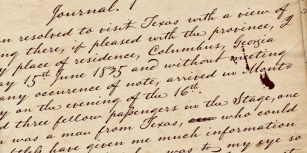 Journal. 1
en resolved to visit Texas with a view of
ing there, if pleased with the province, I
y place of residence, Columbus, Georgia
ay 15th June 1835 and without meeting
any occurence of note, arrived in Mont-
y on the evening of the 16th.
d three fellow passengers in the Stage, one
n was a man from Texas, who could
have given me much information
was to my eye so